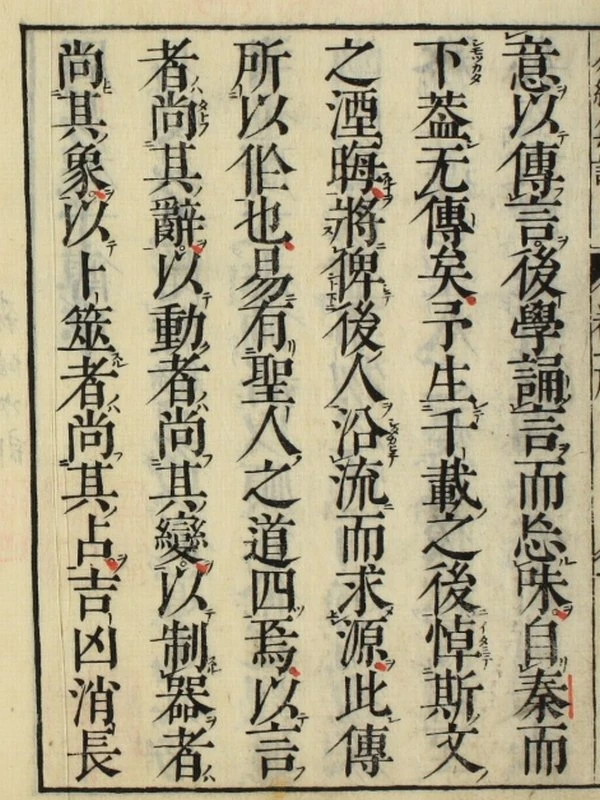 意以傳言後學誦言而忘味自秦而
下蓋无傳矣予生千載之後悼斯文
之湮晦將俾後人沿流而求源此傳
所以作也易有聖人之道四焉以言
者尚其辭以動者尚其變以制器者
尚其象以卜筮者尚其占吉凶消長